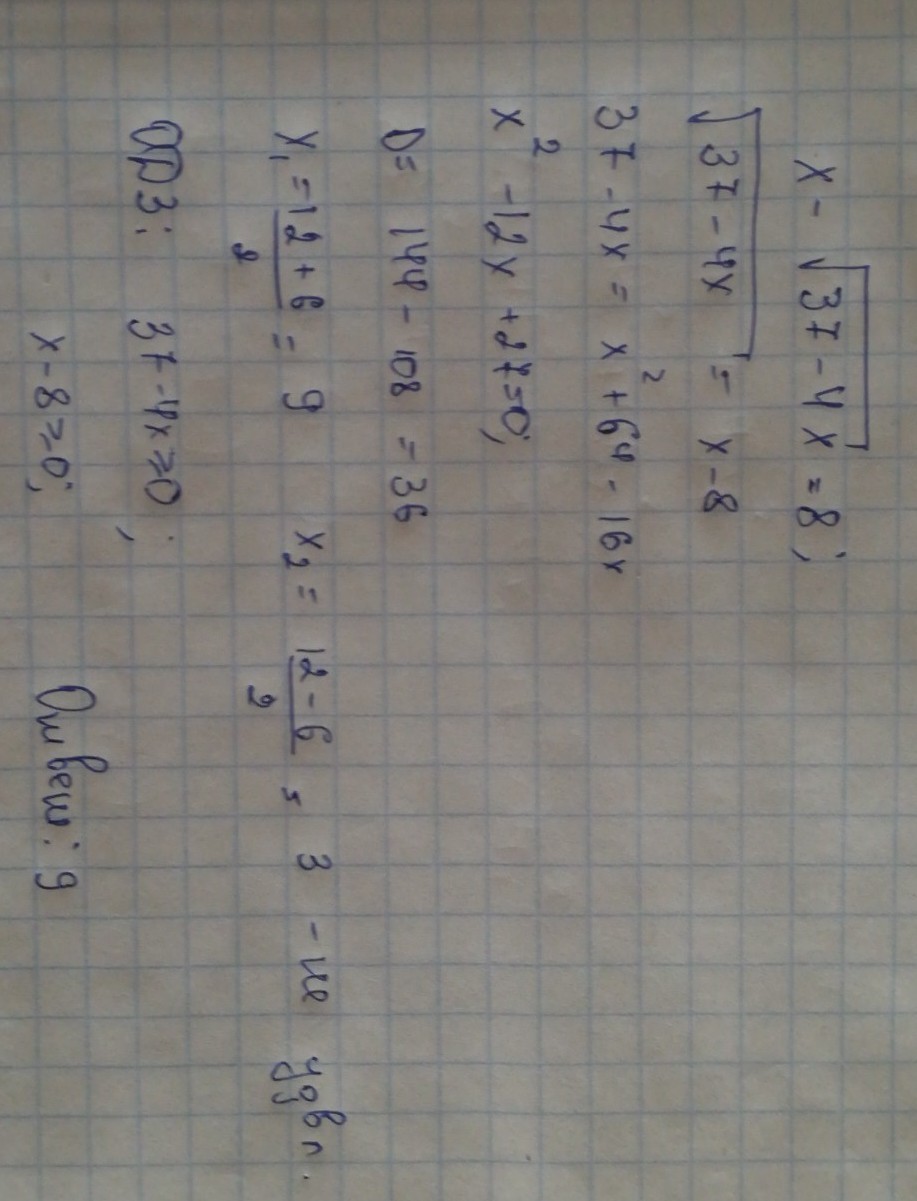 x - √37 - 4x = 8;
√37 - 4x = x - 8
37 - 4x = x² + 64 - 16x
x² - 12x + 27 = 0;
D = 144 - 108 = 36
x₁ = 12 + 6 / 2 = 9 x₂ = 12 - 6 / 2 = 3 - не удвл.
ОДЗ: 37 - 4x ≥ 0;
x - 8 ≥ 0; Ответ: 9